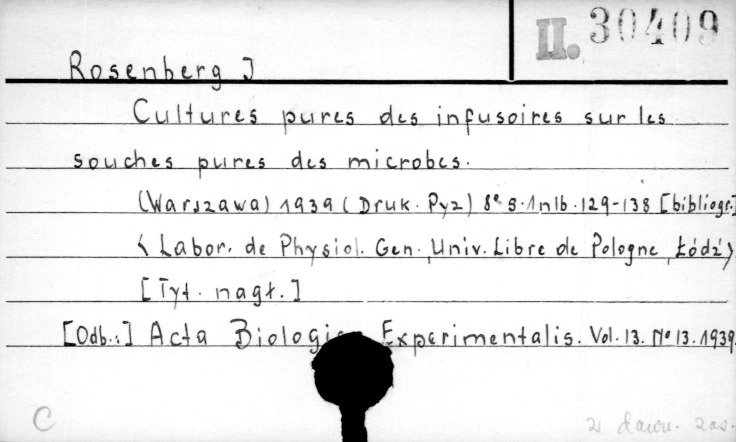 II. 30409
Rosenberg J
Cultures pures des infusoires sur les
souches pures des microbes.
(Warszawa) 1939 (Druk. Pyz) 8° s. 1 nlb. 129-138 [bibliogr.]
< Labor. de Physiol. Gen., Univ. Libre de Pologne, Łódź >
[Tyt. nagł.]
[Odb.:] Acta Biologiae Experimentalis. Vol. 13. No 13. 1939.
C
z dawn. zas.